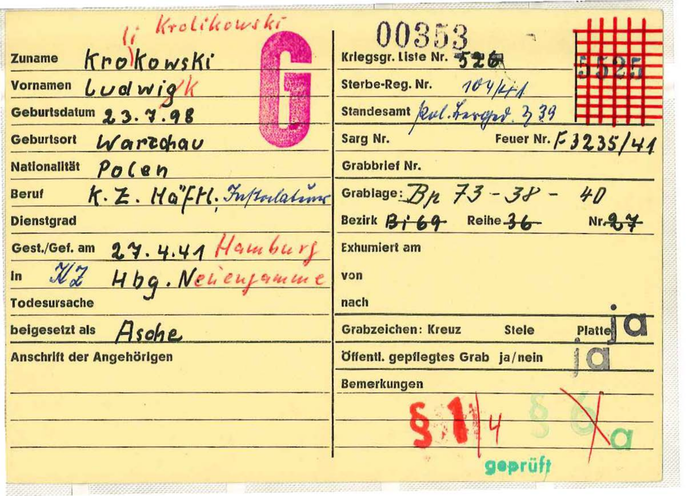 li Krolikowski
Zuname Krokowski
Vornamen Ludwig k
Geburtsdatum 23.7.98
Geburtsort Warschau
Nationalität Polen
Beruf K.Z. Häftl.
Dienstgrad
Gest./Gef. am 27.4.41 Hamburg
In KZ Hbg. Neuengamme
Todesursache
beigesetzt als Asche
Anschrift der Angehörigen
G
00353
Kriegsgr. Liste Nr. 526
5525
Sterbe-Reg. Nr. 104/41
Standesamt
Sarg Nr. Feuer Nr. F3235/41
Grabbrief Nr.
Grablage: Bp 73-38-40
Bezirk Bi 69 Reihe 36 Nr. 27
Exhumiert am
von
nach
Grabzeichen: Kreuz Stele Platte ja
Öffentl. gepflegtes Grab ja/nein ja
Bemerkungen
§ 1/4 § 6 a
geprüft